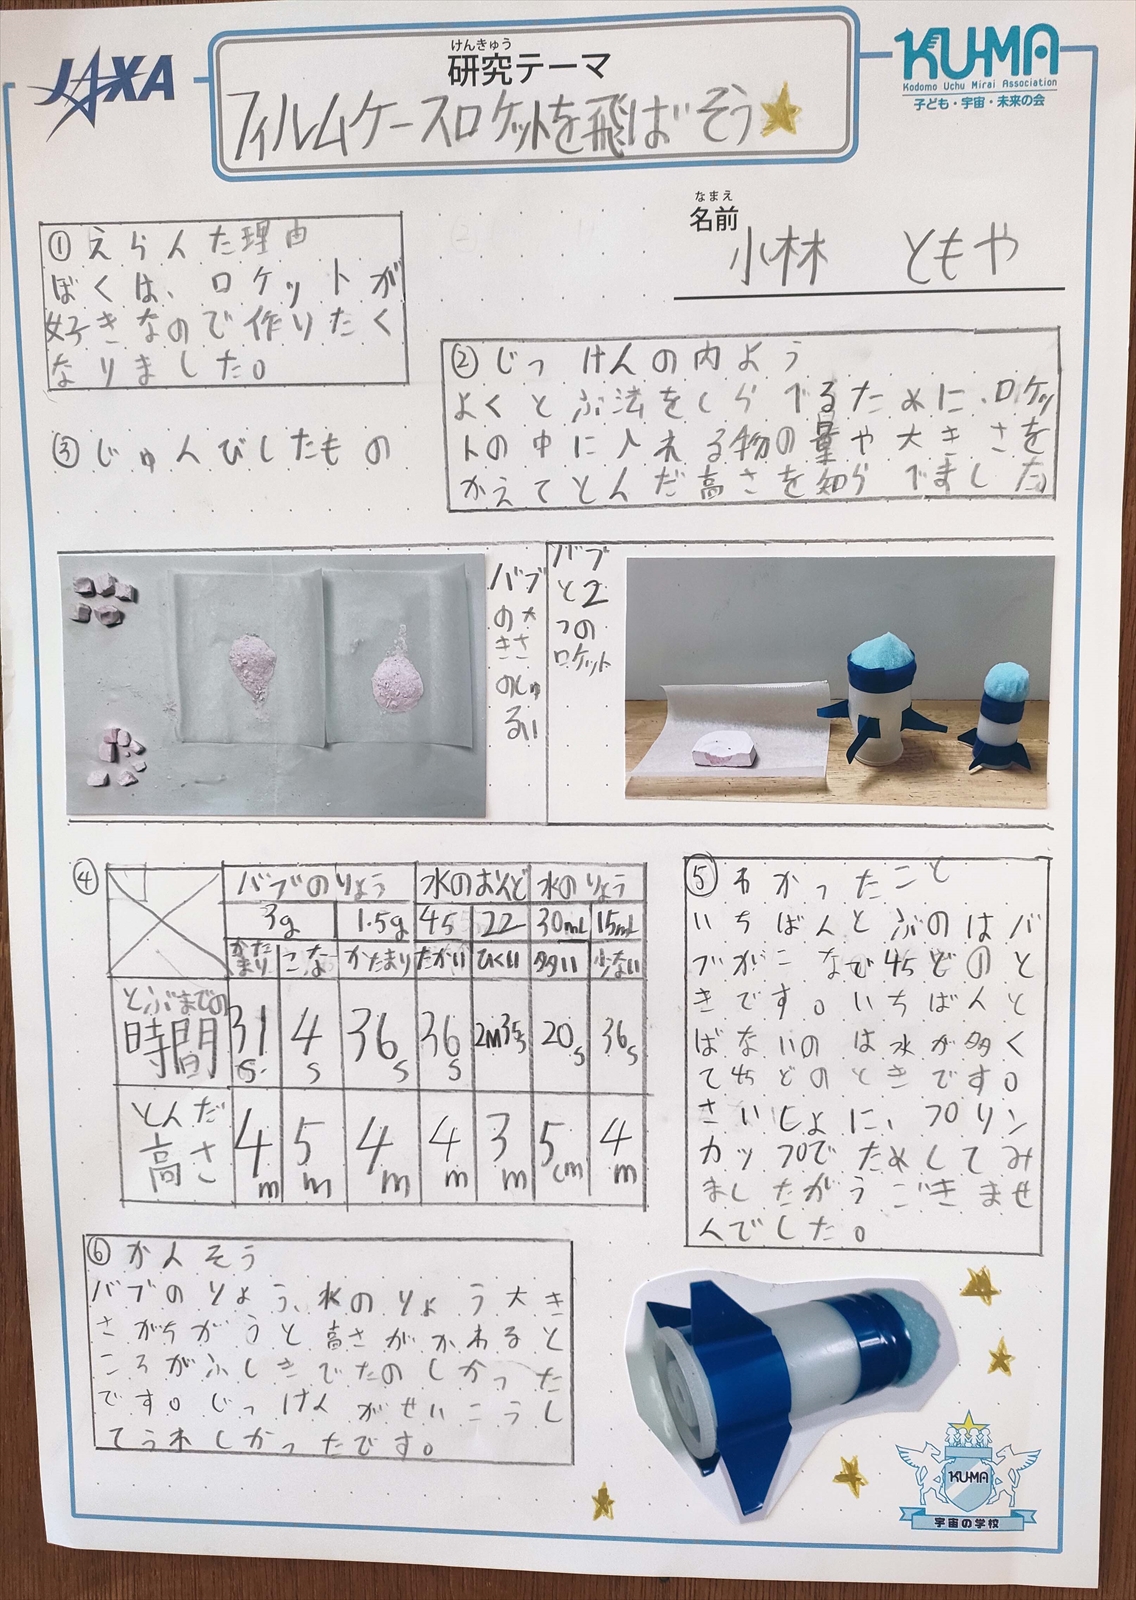 JAXA
けんきゅう
研究テーマ
フィルムケースロケットを飛ばそう
KU-MA
Kodomo Uchu Mirai Association
子ども・宇宙・未来の会
なまえ
名前
小林 ともや
①えらんだ理由
ぼくは、ロケットが
好きなので作りたく
なりました。
②じっけんの内よう
よくとぶ法をしらべるために、ロケッ
トの中に入れる物の量や大きさを
かえてとんだ高さを知らべました。
③じゅんびしたもの
バブ
の大
きさ
のしゅ
るい
バブ
と2
つの
ロケット
④
バブのりょう 水のおんど 水のりょう
3g 1.5g 45 22 30mL 15mL
かたまり こな かたまり たかい ひくい 多い 少ない
とぶまでの
時間 31s 4s 36s 36s 20s 36s
とんだ
高さ 4m 5m 4m 4m 3m 5cm 4m
⑤わかったこと
いちばんとぶのはバ
ブがこなで45どのと
きです。いちばんと
ばないのは水が多く
て45どのときです。
さいしょに、プリン
カップでためしてみ
ましたがうごきませ
んでした。
⑥かんそう
バブのりょう、水のりょう大き
さがちがうと高さがかわると
ころがふしぎでたのしかった
です。じっけんがせいこうし
てうれしかったです。
KU-MA
宇宙の学校